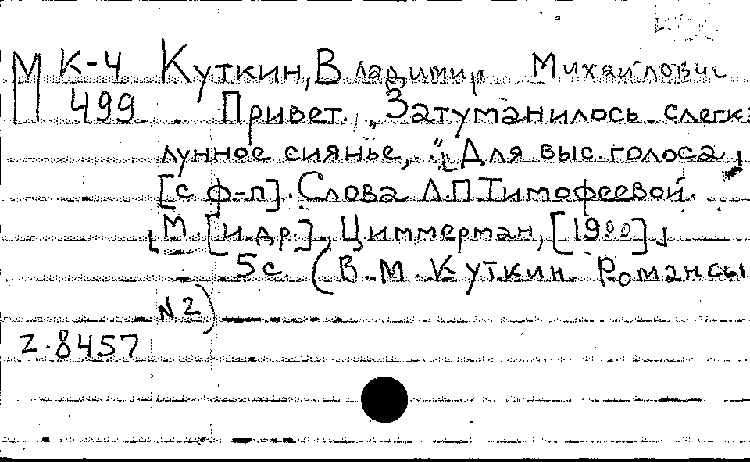 М К-4 Куткин, Владимир Михайлович
499 Привет. „Затуманилось слегка
лунное сиянье,..." [Для выс. голоса
[с ф-п]. Слова Л.П. Тимофеевой.
М. [и др.], Циммерман, [1900]
5с (В.М. Куткин. Романсы
N2)
Z.8457